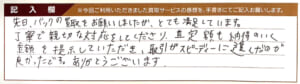 記入欄
※今回ご利用いただきました買取サービスの感想を、手書きにてご記入お願いします。
先日、バックの買取をお願いしましたが、とても満足しています。
丁寧で親切な対応をしてくださり、査定額も納得のいく
金額を提示していただき、取引がスピーディーに進んだのが
良かったです。ありがとうございます